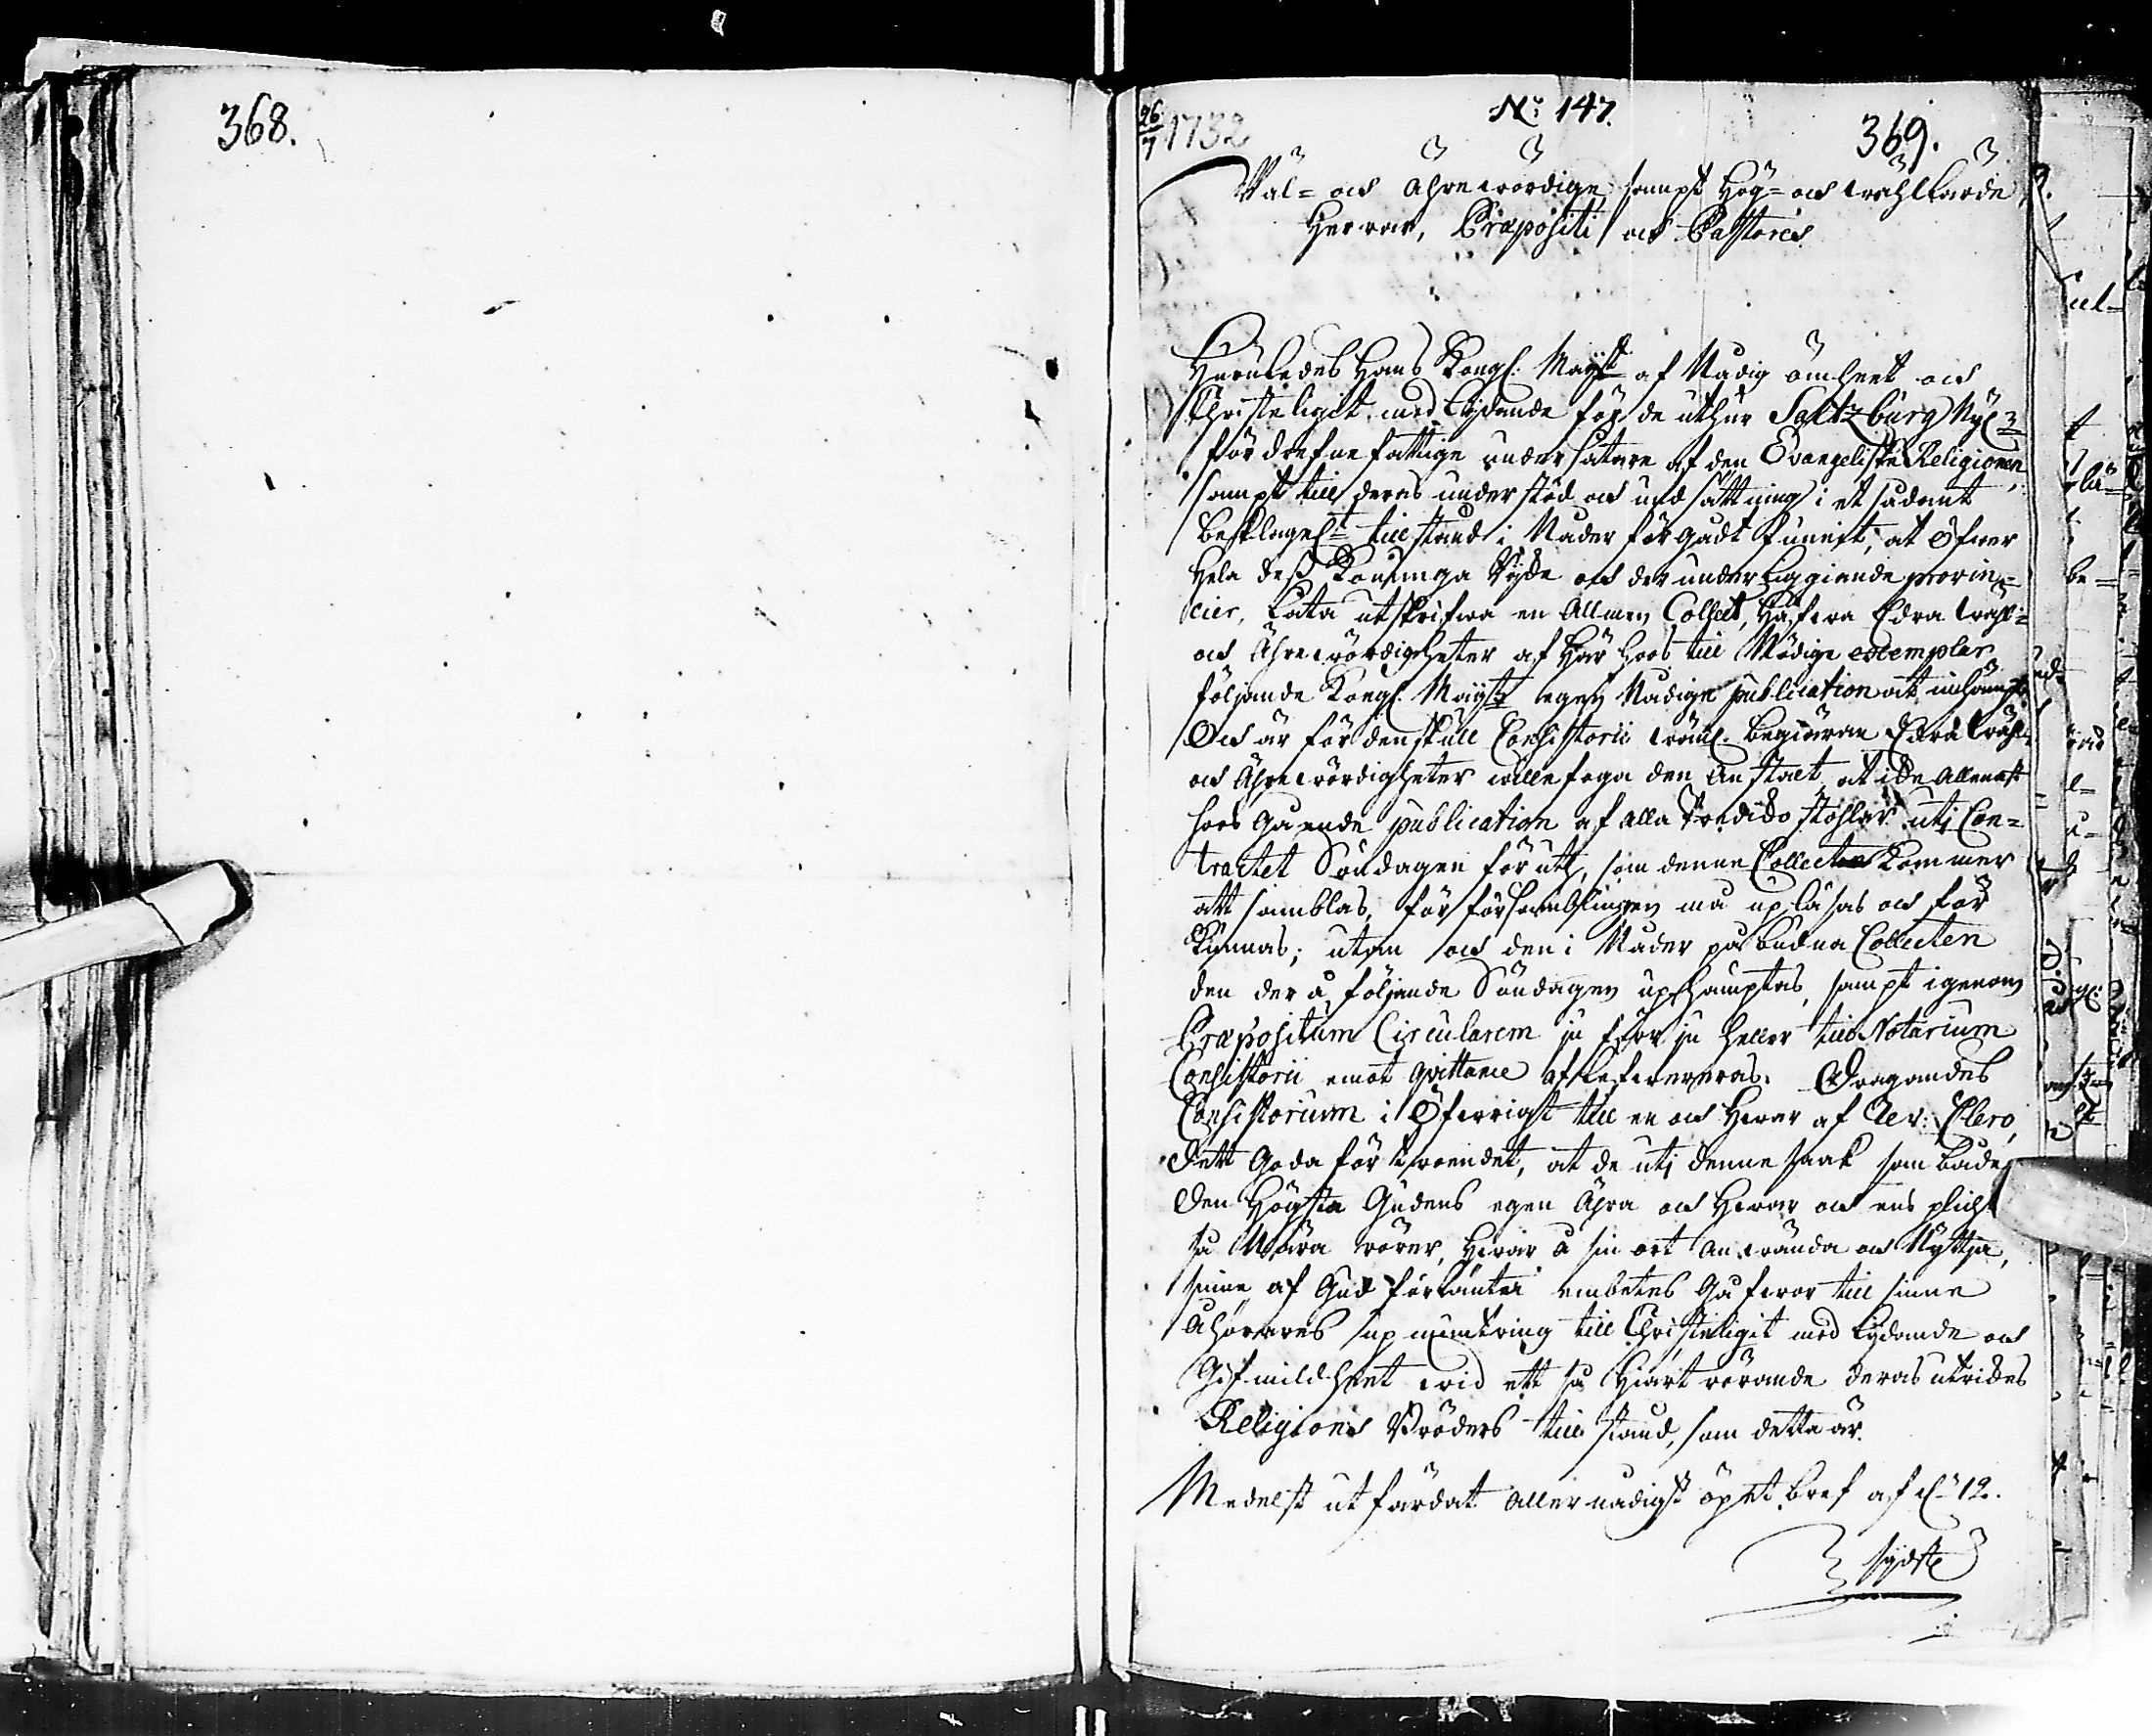 368.
26/7 1732
No: 147.
369.
Wäl= och Ährewördige, sampt Hög= och wählLärde
Herrar, Præpositi och Pastores
Hurüledes Hans Kongl: Mayst af Nådig ömheet och
Christeligit medLijdande för de uthur Saltzburg Nyl=
fördrefne fattige undersåtare af den Evangeliske Religionen,
sampt till deras understöd och undsättning i et sådant
Beklagel:t tillstånd i Nåder för godt funnit, at öfwer
Hela deß Konunga Rijke och der underliggiande provin=
cier, Låta utskrifwa en Allmen Collect, Häfwa Edra Wähl=
och Ährewördigheter af Här hoos till Nödige exemplar
följande Kongl. Mayts egen Nådige publication at inhämpta
Och är för den skull Consistorii wänl. begiäran Edra Wähl=
och Ährewördigheter wille foga den Anstalt, at ide Allenast
hoos Gående publication af alla Prediko stohlar uti Con=
tractet Söndagen för ut, som denne Collecten Kommer
att samblas, för församblingen må uplåsas och for
Kunnas; utan och den i Nåder påbudna Collecten
den der å följande Söndagen uphämptas, sampt igenom
Præpositum Circularem ju förr ju heller till Notarium
Consistorii emot qvittance aflefwereras. Dragandes
Consistorium i öferrigt till en och Hwar af Rev: Clero,
Dett Goda förtroendet, at de uti denne saak som både
Den Högsta Gudens egen Ähra och Hwar och ens plicht
så Nära rörer, Hwar å sin ort Anwända och Nyttja,
sine af Gud förlänte embetes Gåfwor till sinne
Åhörares upmuntring till Christeligit medLijdande och
Gifmildheet wid ett så Hiärtrörande deras utrides
Religions Bröders tillstånd, som detta är.
Medelst utfärdat Allernådigst öpet bref af d: 12.
sidste